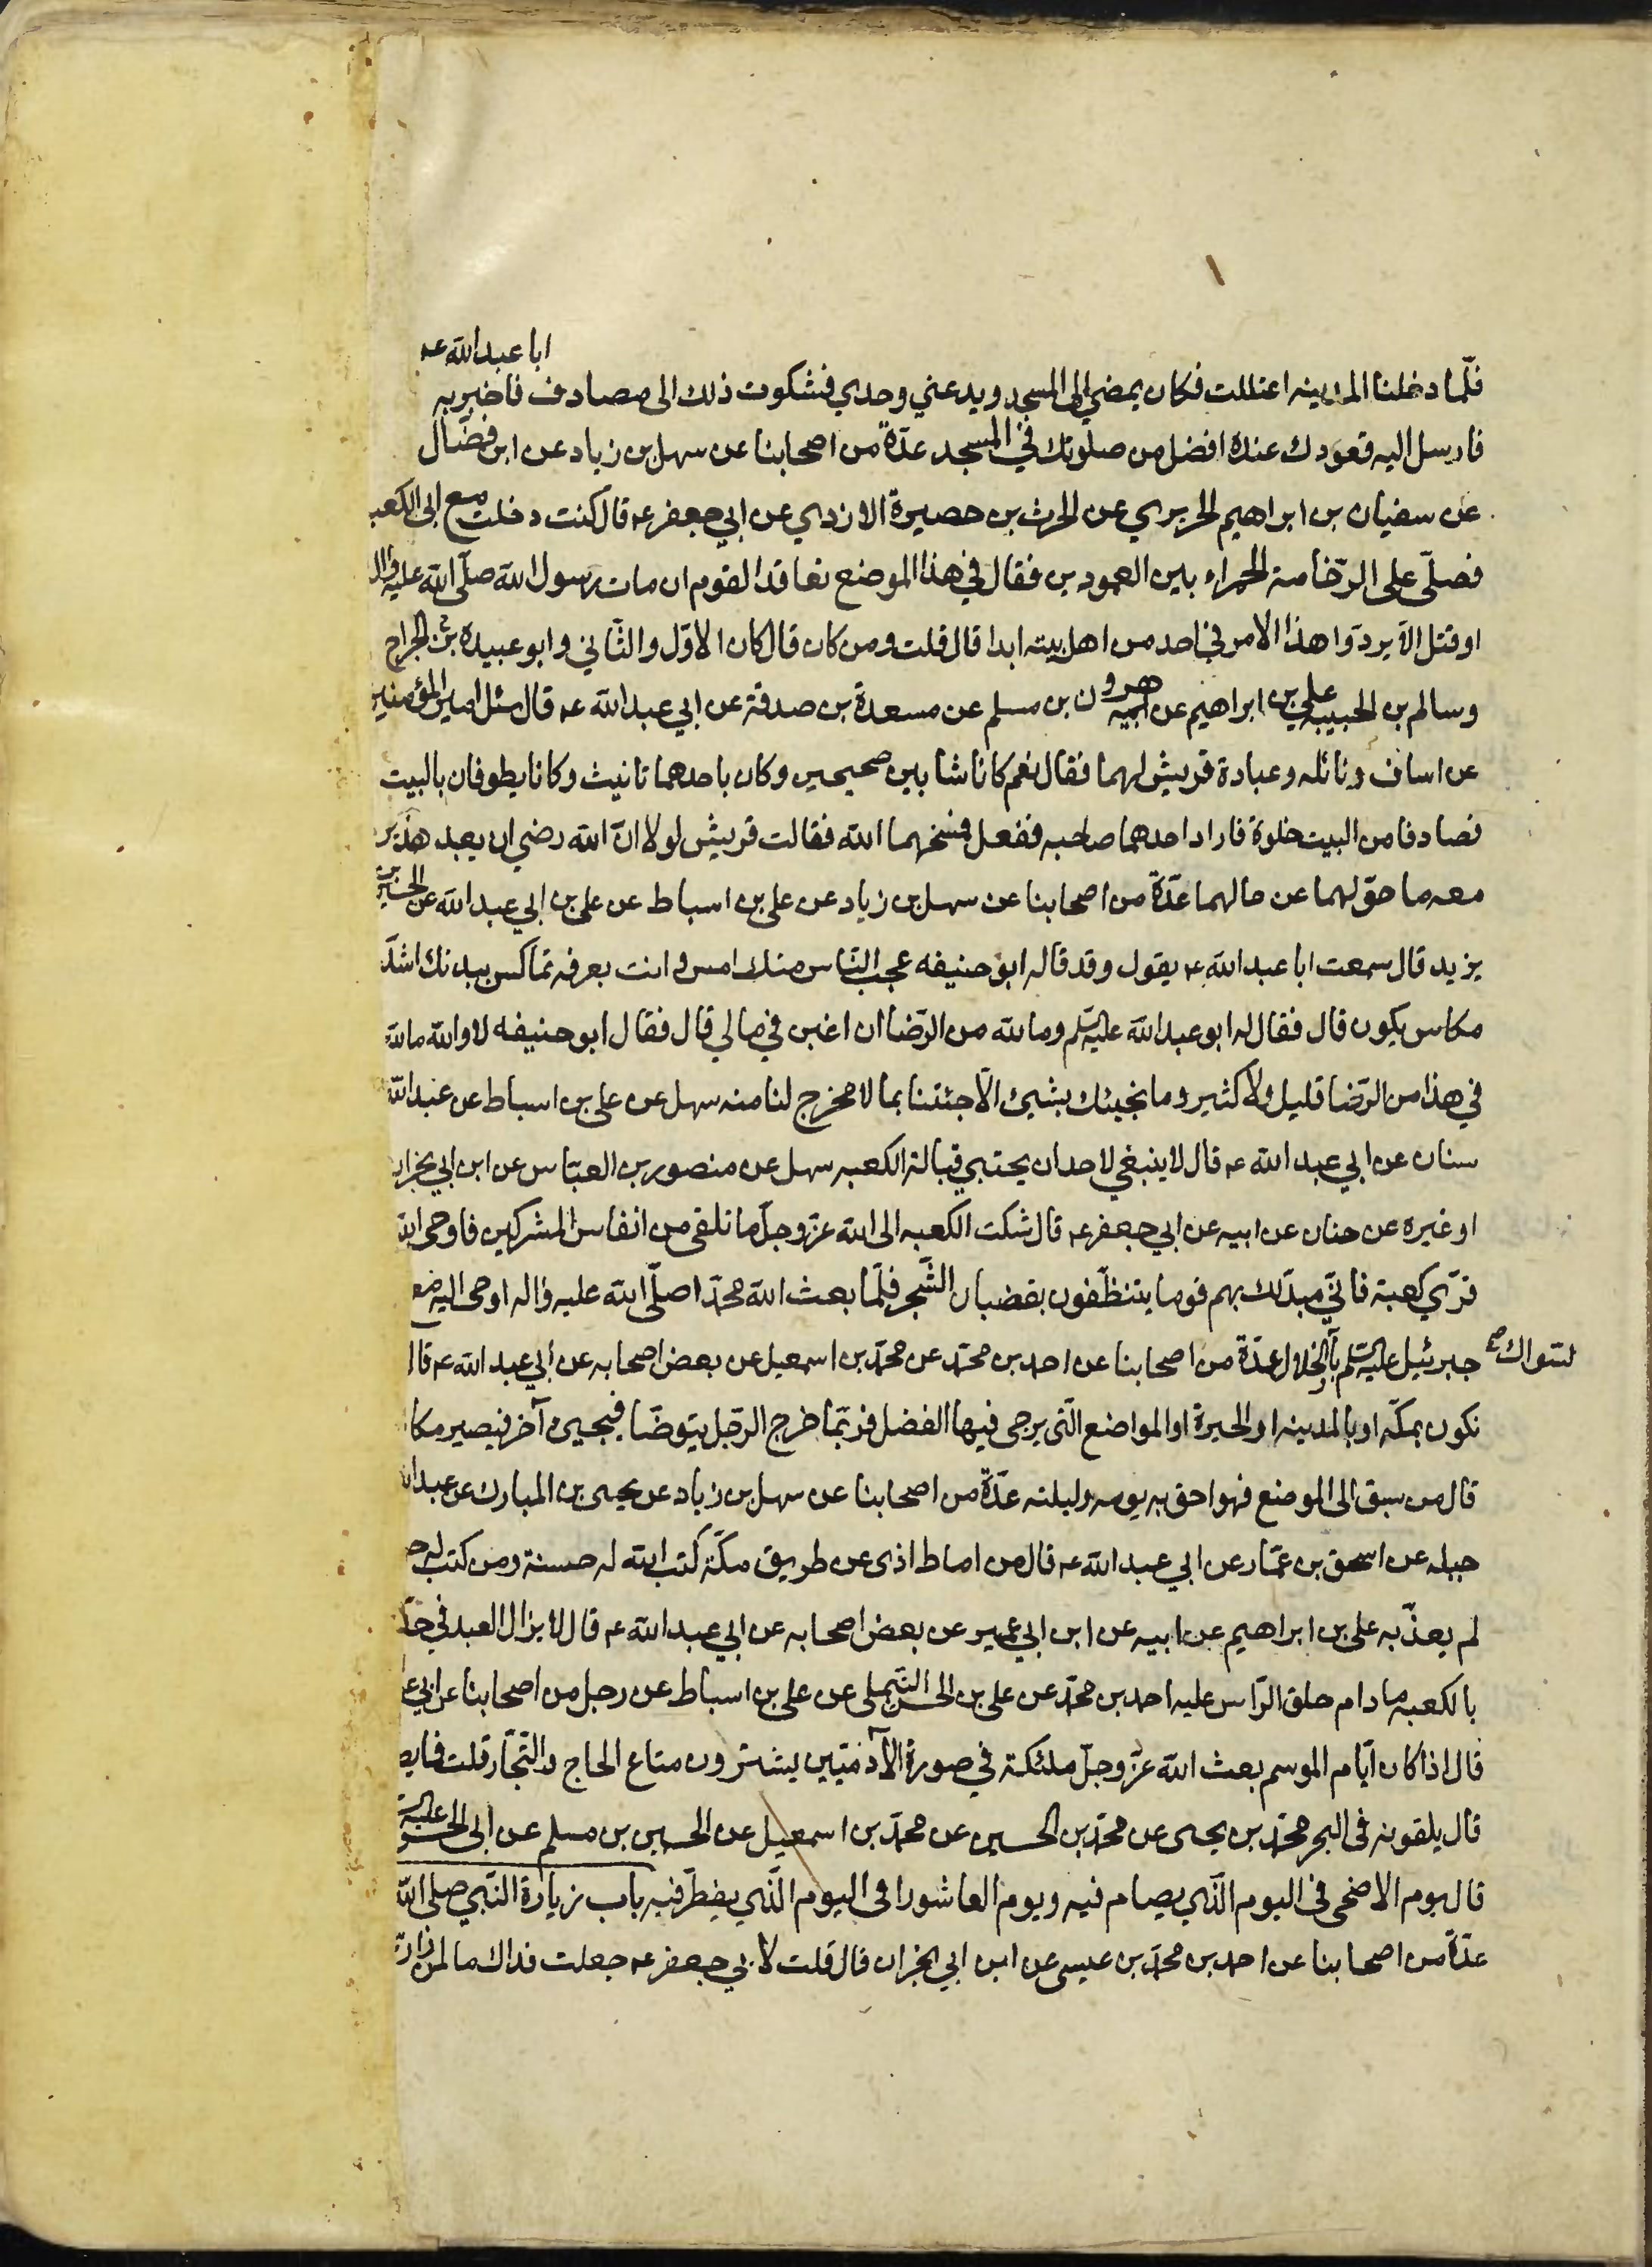 ابا عبد الله عه
فلمّا دخلنا المدينه اعتللت فكان يمضي الى المسجد ويدعني وحدي فشكوت ذلك الى مصادف فاخبر به
فارسل اليه قعودك عنده افضل من صلوتك في المسجد عدّة من اصحابنا عن سهل بن زياد عن ابن فضّال
عن سفيان بن ابراهيم الحريري عن الحرث بن حصيرة الازدي عن ابي جعفر عه قال كنت دخلت مع ابى الكعبه
فصلّى على الرّخامة الحمراء بين العمودين فقال في هذا الموضع تعاقد القوم ان مات رسول الله صلّى الله عليه واله
او قتل الّا يردّوا هذا الامر في احد من اهل بيته ابدا قال قلت ومن كان قال كان الاوّل والثّاني وابو عبيدة بن الجراح
وسالم بن الحبيبه علي بن ابراهيم عن ابيه هرون بن مسلم عن مسعدة بن صدقة عن ابي عبد الله عه قال سئل امير المؤمنين
عن اساف ونائله وعبادة قريش لهما فقال نعم كانا شابين صحيحين وكان باحدهما تانيث وكانا يطوفان بالبيت
فصادفا من البيت خلوة فاراد احدهما صاحبه ففعل فمسخهما الله فقالت قريش لولا انّ الله رضي ان يعبد هذين
معه ما حوّلهما عن حالهما عدّة من اصحابنا عن سهل بن زياد عن علي بن اسباط عن علي بن ابي عبد الله عن الحسين بن
يزيد قال سمعت ابا عبد الله عه يقول وقد قال له ابو حنيفه عجب النّاس منك امس وانت بعرفه تماكس ببدنك اشدّ
مكاس يكون قال فقال له ابو عبد الله عليه السّلم وما لله من الرّضا ان اغبن في مالي قال فقال ابو حنيفه لا والله ما لله
في هذا من الرّضا قليل ولا كثير وما نجيئك بشيئ الّا جئتنا بما لا مخرج لنا منه سهل عن علي بن اسباط عن عبد الله
سنان عن ابي عبد الله عه قال لا ينبغي لاحد ان يحتبي قبالة الكعبه سهل عن منصور بن العبّاس عن ابن ابي نجران
او غيره عن حنان عن ابيه عن ابي جعفر عه قال شكت الكعبه الى الله عزّ وجلّ ما تلقى من انفاس المشركين فاوحى الله
قرّي كعبة فانّي مبدّلك بهم قوما يتنظّفون بقضبان الشّجر فلمّا بعث الله محمّدا صلّى الله عليه واله اوحى اليه مع
جبرئيل عليه السّلم بالسّواك والخلال عدّة من اصحابنا عن احمد بن محمّد عن محمّد بن اسمعيل عن بعض اصحابه عن ابي عبد الله عه قال
نكون بمكّه او بالمدينه او الحيرة او المواضع الّتى يرجى فيها الفضل فربّما خرج الرّجل يتوضّا فيجيئ آخر فيصير مكا
قال من سبق الى الموضع فهو احق به يومه وليلته عدّة من اصحابنا عن سهل بن زياد عن يحيى بن المبارك عن عبد الله
جبله عن اسحق بن عمّار عن ابي عبد الله عه قال من اماط اذى عن طريق مكّة كتب الله له حسنة ومن كتب له
لم يعذّبه علي بن ابراهيم عن ابيه عن ابن ابي عمير عن بعض اصحابه عن ابي عبد الله عه قال لا يزال العبد في حدّ
بالكعبه ما دام حلق الرّاس عليه احمد بن محمّد عن علي بن الحسن التّيملي عن علي بن اسباط عن رجل من اصحابنا عن ابي
قال اذا كان ايّام الموسم بعث الله عزّ وجلّ ملئكة في صورة الآدميّين يشترون متاع الحاج والتّجار قلت فما
قال يلقونه في البحر محمّد بن يحيى عن محمّد بن الحسين عن محمّد بن اسمعيل عن الحسين بن مسلم عن ابى الحسن عليه
قال يوم الاضحى في اليوم الّذي يصام فيه ويوم العاشورا في اليوم الّذي يفطر فيه باب زيارة النّبي صلى الله
عدّة من اصحابنا عن احمد بن محمّد بن عيسى عن ابن ابي نجران قال قلت لابي جعفر عه جعلت فداك ما لمن زار